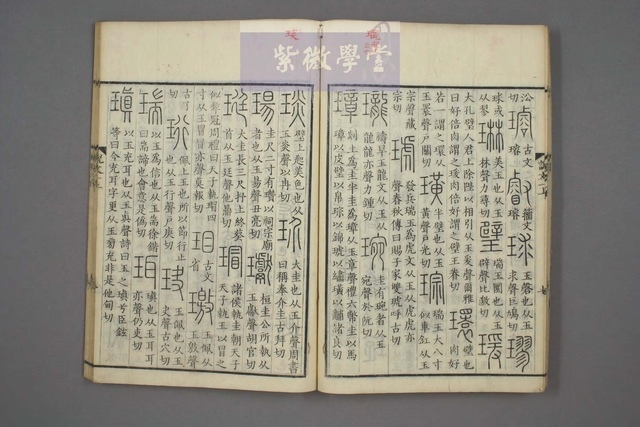 紫微學堂
切 璿 古文璿 叡 籒文璿 球 玉磬也从玉求聲巨鳩切 璆
球或从翏 琳 美玉也从玉林聲力尋切 璧 瑞玉圜也从玉辟聲比激切 瑗
大孔璧人君上除陛以相引从玉爰聲爾雅曰好倍肉謂之瑗肉倍好謂之璧王眷切 環 璧也肉好
若一謂之環从玉睘聲戶關切 璜 半璧也从玉黃聲戶光切 琮 瑞玉大八寸似車釭从玉
宗聲藏宗切 琥 發兵瑞玉爲虎文从玉从虎虎亦聲春秋傳曰賜子家雙琥呼古切
瓏 禱旱玉龍文从玉从龍龍亦聲力鍾切 琬 圭有琬者从玉宛聲於阮切
璋 剡上爲圭半圭爲璋从玉章聲禮六幣圭以馬璋以皮璧以帛琮以錦琥以繡璜以黼諸良切
琰 璧上起美色也从玉炎聲以冉切 玠 大圭也从玉介聲周書曰稱奉介圭古拜切
瑒 圭尺二寸有瓚以祠宗廟者也从玉昜聲丑亮切 瓛 桓圭公所執从玉獻聲胡官切
珽 大圭長三尺抒上終葵首从玉廷聲他鼎切 瑁 諸侯執圭朝天子天子執玉以冒之
似犂冠周禮曰天子執瑁四寸从玉冒冒亦聲莫報切 珇 古文省 璬 玉佩从玉敫聲
古了切 珩 佩上玉也所以節行止也从玉行聲戶庚切 玦 玉佩也从玉夬聲古穴切
瑞 以玉爲信也从玉耑徐鍇曰耑諦也會意是僞切 珥 瑱也从玉耳耳亦聲仍吏切
瑱 以玉充耳也从玉真聲詩曰玉之瑱兮臣鉉等曰今充耳字更从玉旁充非是他甸切